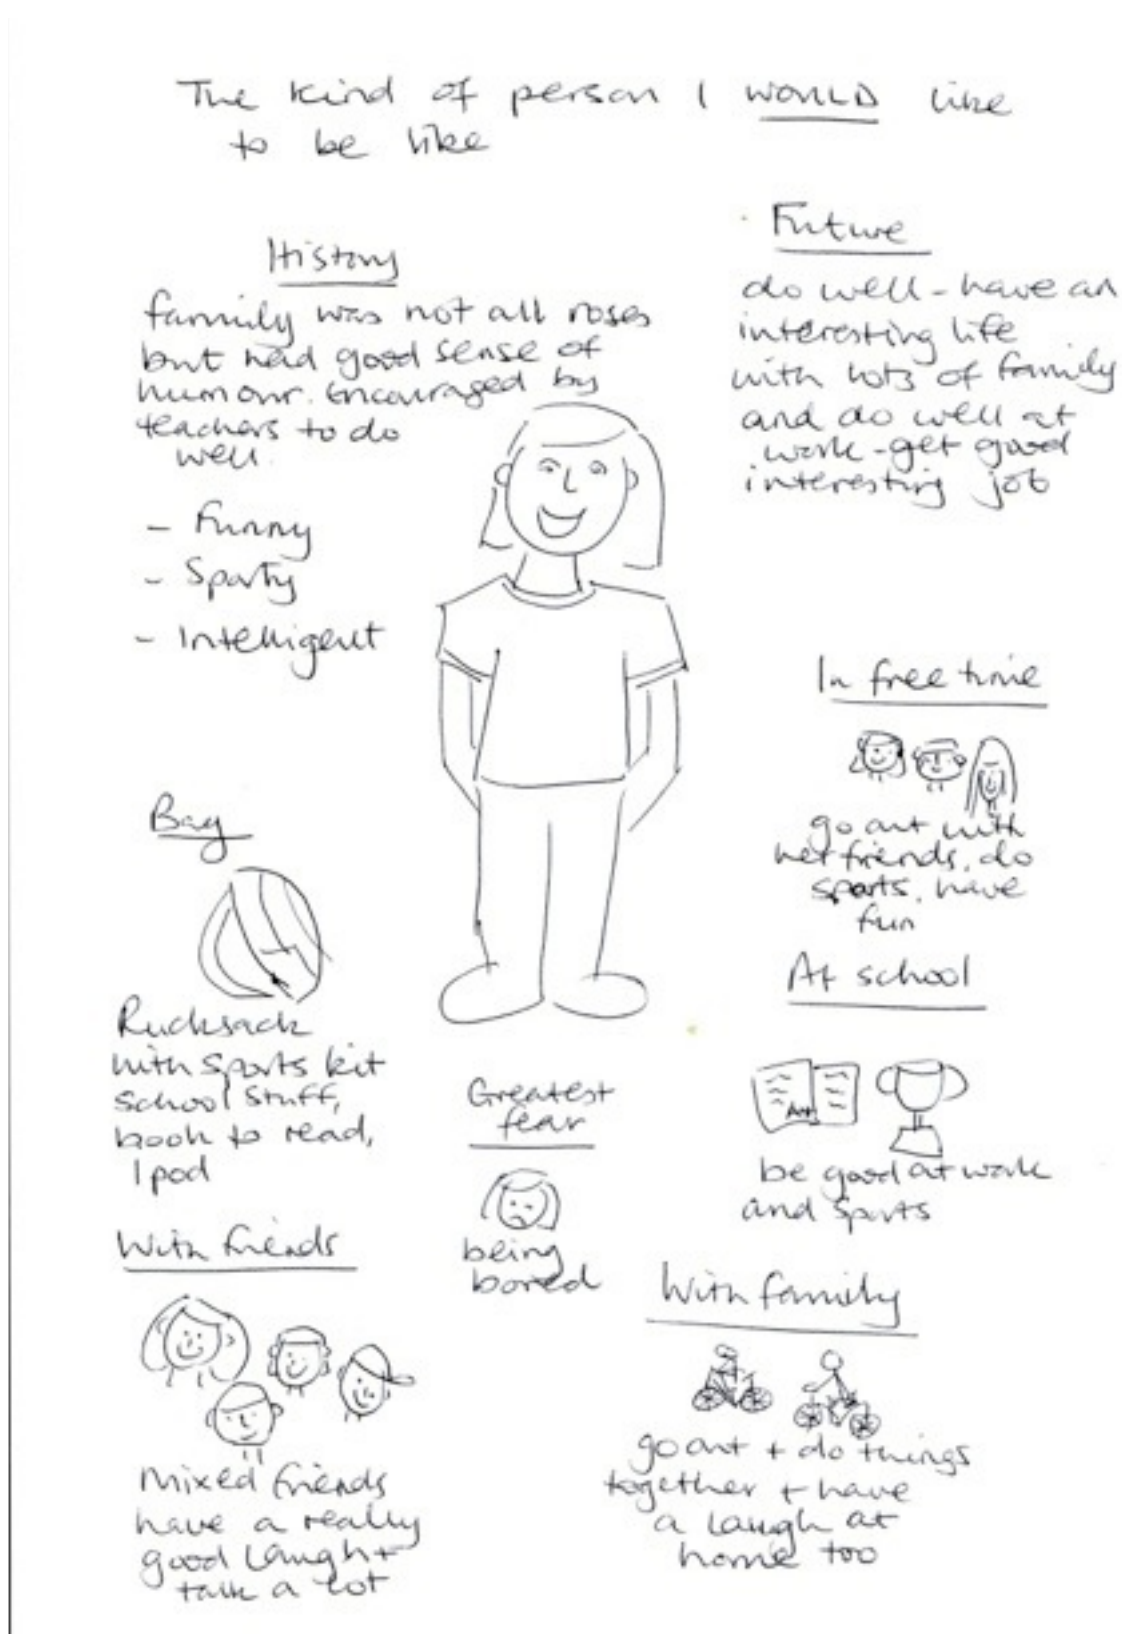 The kind of person I WOULD like
to be like
History
family was not all roses
but had good sense of
humour. Encouraged by
teachers to do
well.
- Funny
- Sporty
- Intelligent
Future
do well - have an
interesting life
with lots of family
and do well at
work - get good
interesting job
In free time
go out with
her friends, do
sports, have
fun
Bag
Rucksack
with sports kit
school stuff,
book to read,
Ipod
At school
Art
be good at work
and sports
Greatest
fear
being
bored
With friends
mixed friends
have a really
good laugh +
talk a lot
With family
go out + do things
together + have
a laugh at
home too